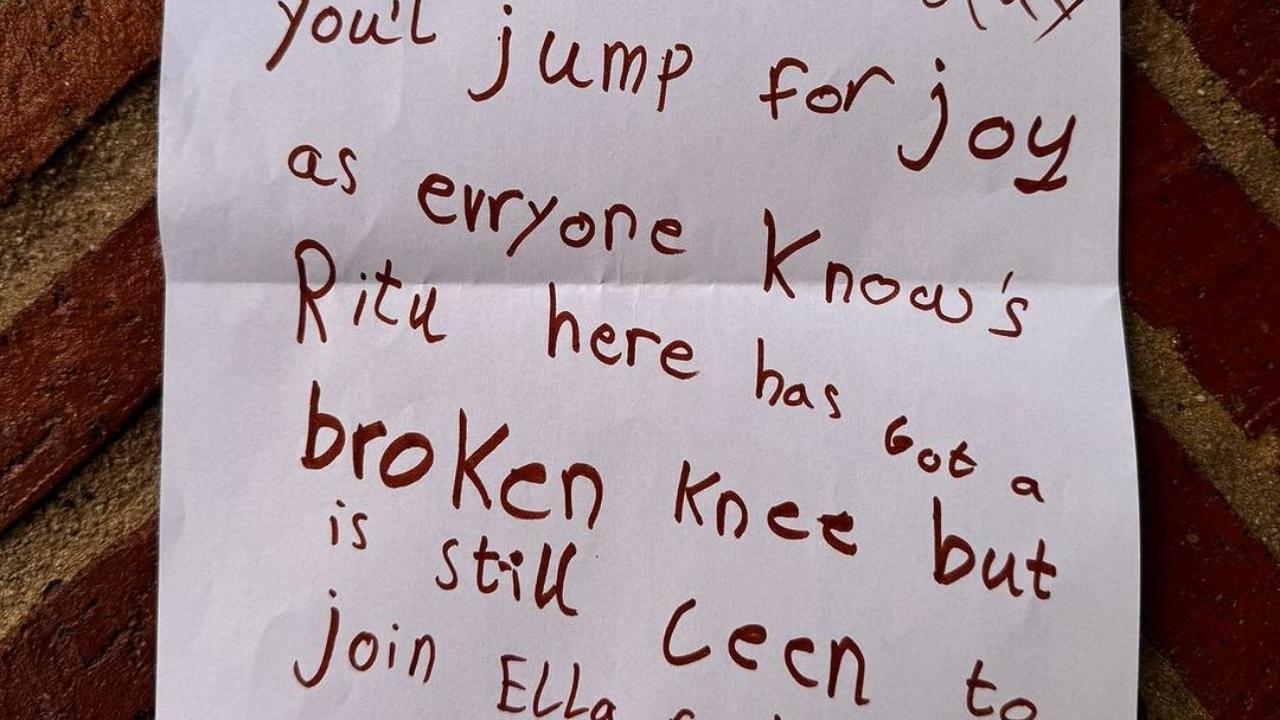 you'l jump for joy
as evryone Know's
Ritu here has Got a
broken knee but
is still Ceen to
join Ella